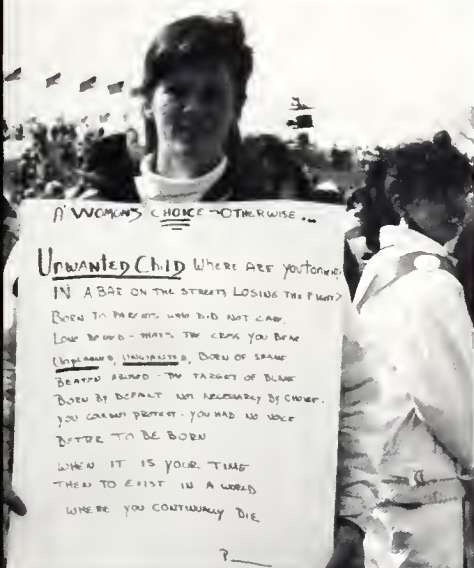 A WOMAN'S CHOICE - OTHERWISE...
UNWANTED CHILD WHERE ARE YOU TONIGHT
IN A BAR ON THE STREETS LOSING THE FIGHT?
BORN TO PARENTS WHO DID NOT CARE.
LOVE DENIED - THAT'S THE CROSS YOU BEAR
UNPLANNED, UNWANTED, BORN OF SHAME
BEATEN ABUSED - THE TARGET OF BLAME
BORN BY DEFAULT NOT NECESSARILY BY CHOICE.
YOU COULDN'T PROTEST - YOU HAD NO VOICE
BETTER TO BE BORN
WHEN IT IS YOUR TIME
THEN TO EXIST IN A WORLD
WHERE YOU CONTINUALLY DIE